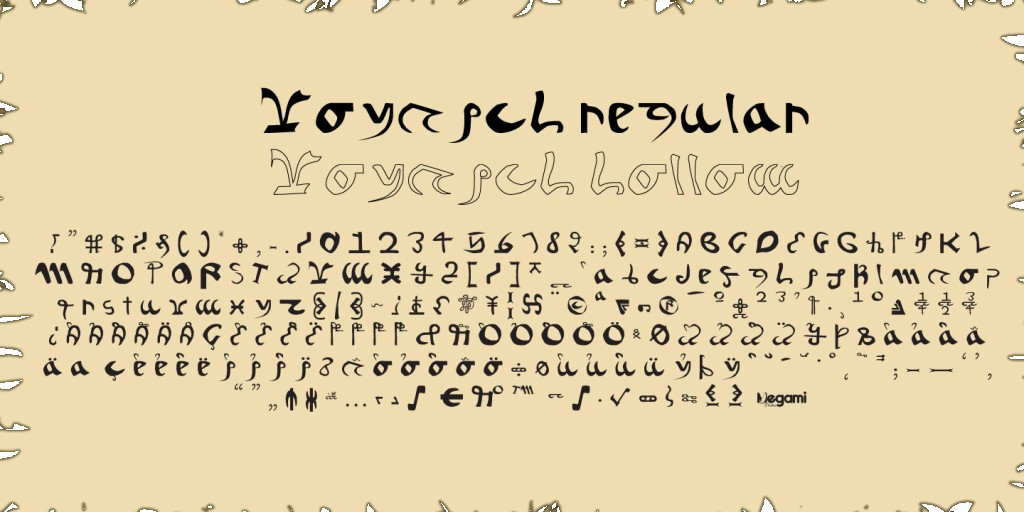 Voynich regular
Voynich hollow
! " # $ % & ( ) * + , - . / 0 1 2 3 4 5 6 7 8 9 : ; < = > A B C D E F G H I J K L
M N O P Q R S T U V W X Y Z [ \ ] ^ _ ` a b c d e f g h i j k l m n o p
q r s t u v w x y z { | } ~ ¡ ¢ £ ¤ ¥ ¦ § ¨ © ª « ¬ ® ¯ ° ± ² ³ ´ ¶ · ¸ ¹ º » ¼ ½ ¾
¿ À Á Â Ã Ä Å Ç È É Ê Ë Ì Í Î Ï Ð Ñ Ò Ó Ô Õ Ö × Ø Ù Ú Û Ü Ý Þ ß à á â ã
ä å ç è é ê ë ì í î ï ð ñ ò ó ô õ ö ÷ ø ù ú û ü ý þ ÿ
“ ” „ † ‡ … ‹ › € ™ ∫ √ Negami